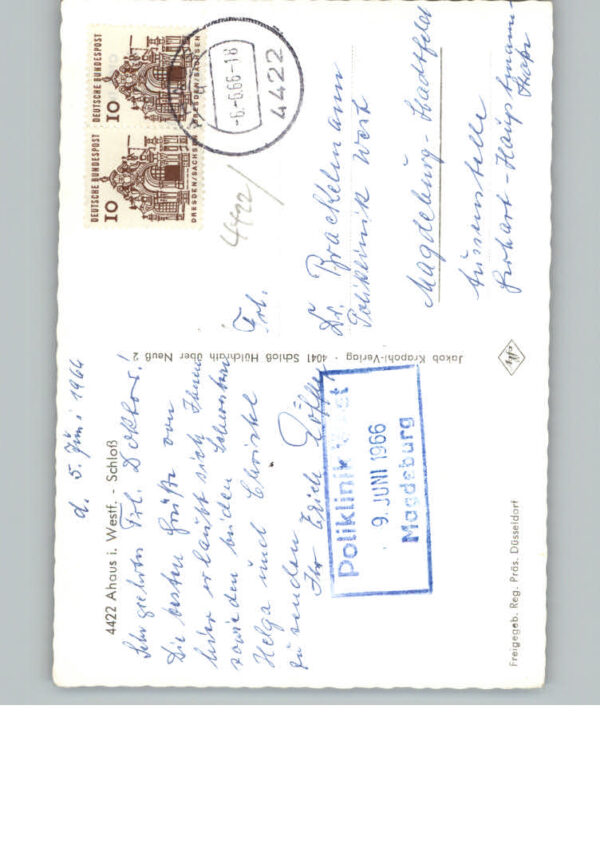 4422 Ahaus i. Westf. - Schloß
d. 5. Juni 1966
Sehr geehrtes Frl. Doktor!
Die besten Grüße von
hier erlaubt sich Ihnen
sowie den beiden Schwestern
Helga und Christel
zu senden
Ihr Erich
Freigegeb. Reg. Präs. Düsseldorf
Jakob Krapohl-Verlag · 4041 Schloß Hülchrath über Neuß 2
Poliklinik West
9. JUNI 1966
Magdeburg
DEUTSCHE BUNDESPOST
10
DRESDEN/SACHSEN
DEUTSCHE BUNDESPOST
10
DRESDEN/SACHSEN
-6.6.66-18
4422
4422
Frl.
Dr. Brackelmann
Poliklinik West
Magdeburg-Stadtfeld
Aussenstelle
Gerhart-Hauptmann-
Straße